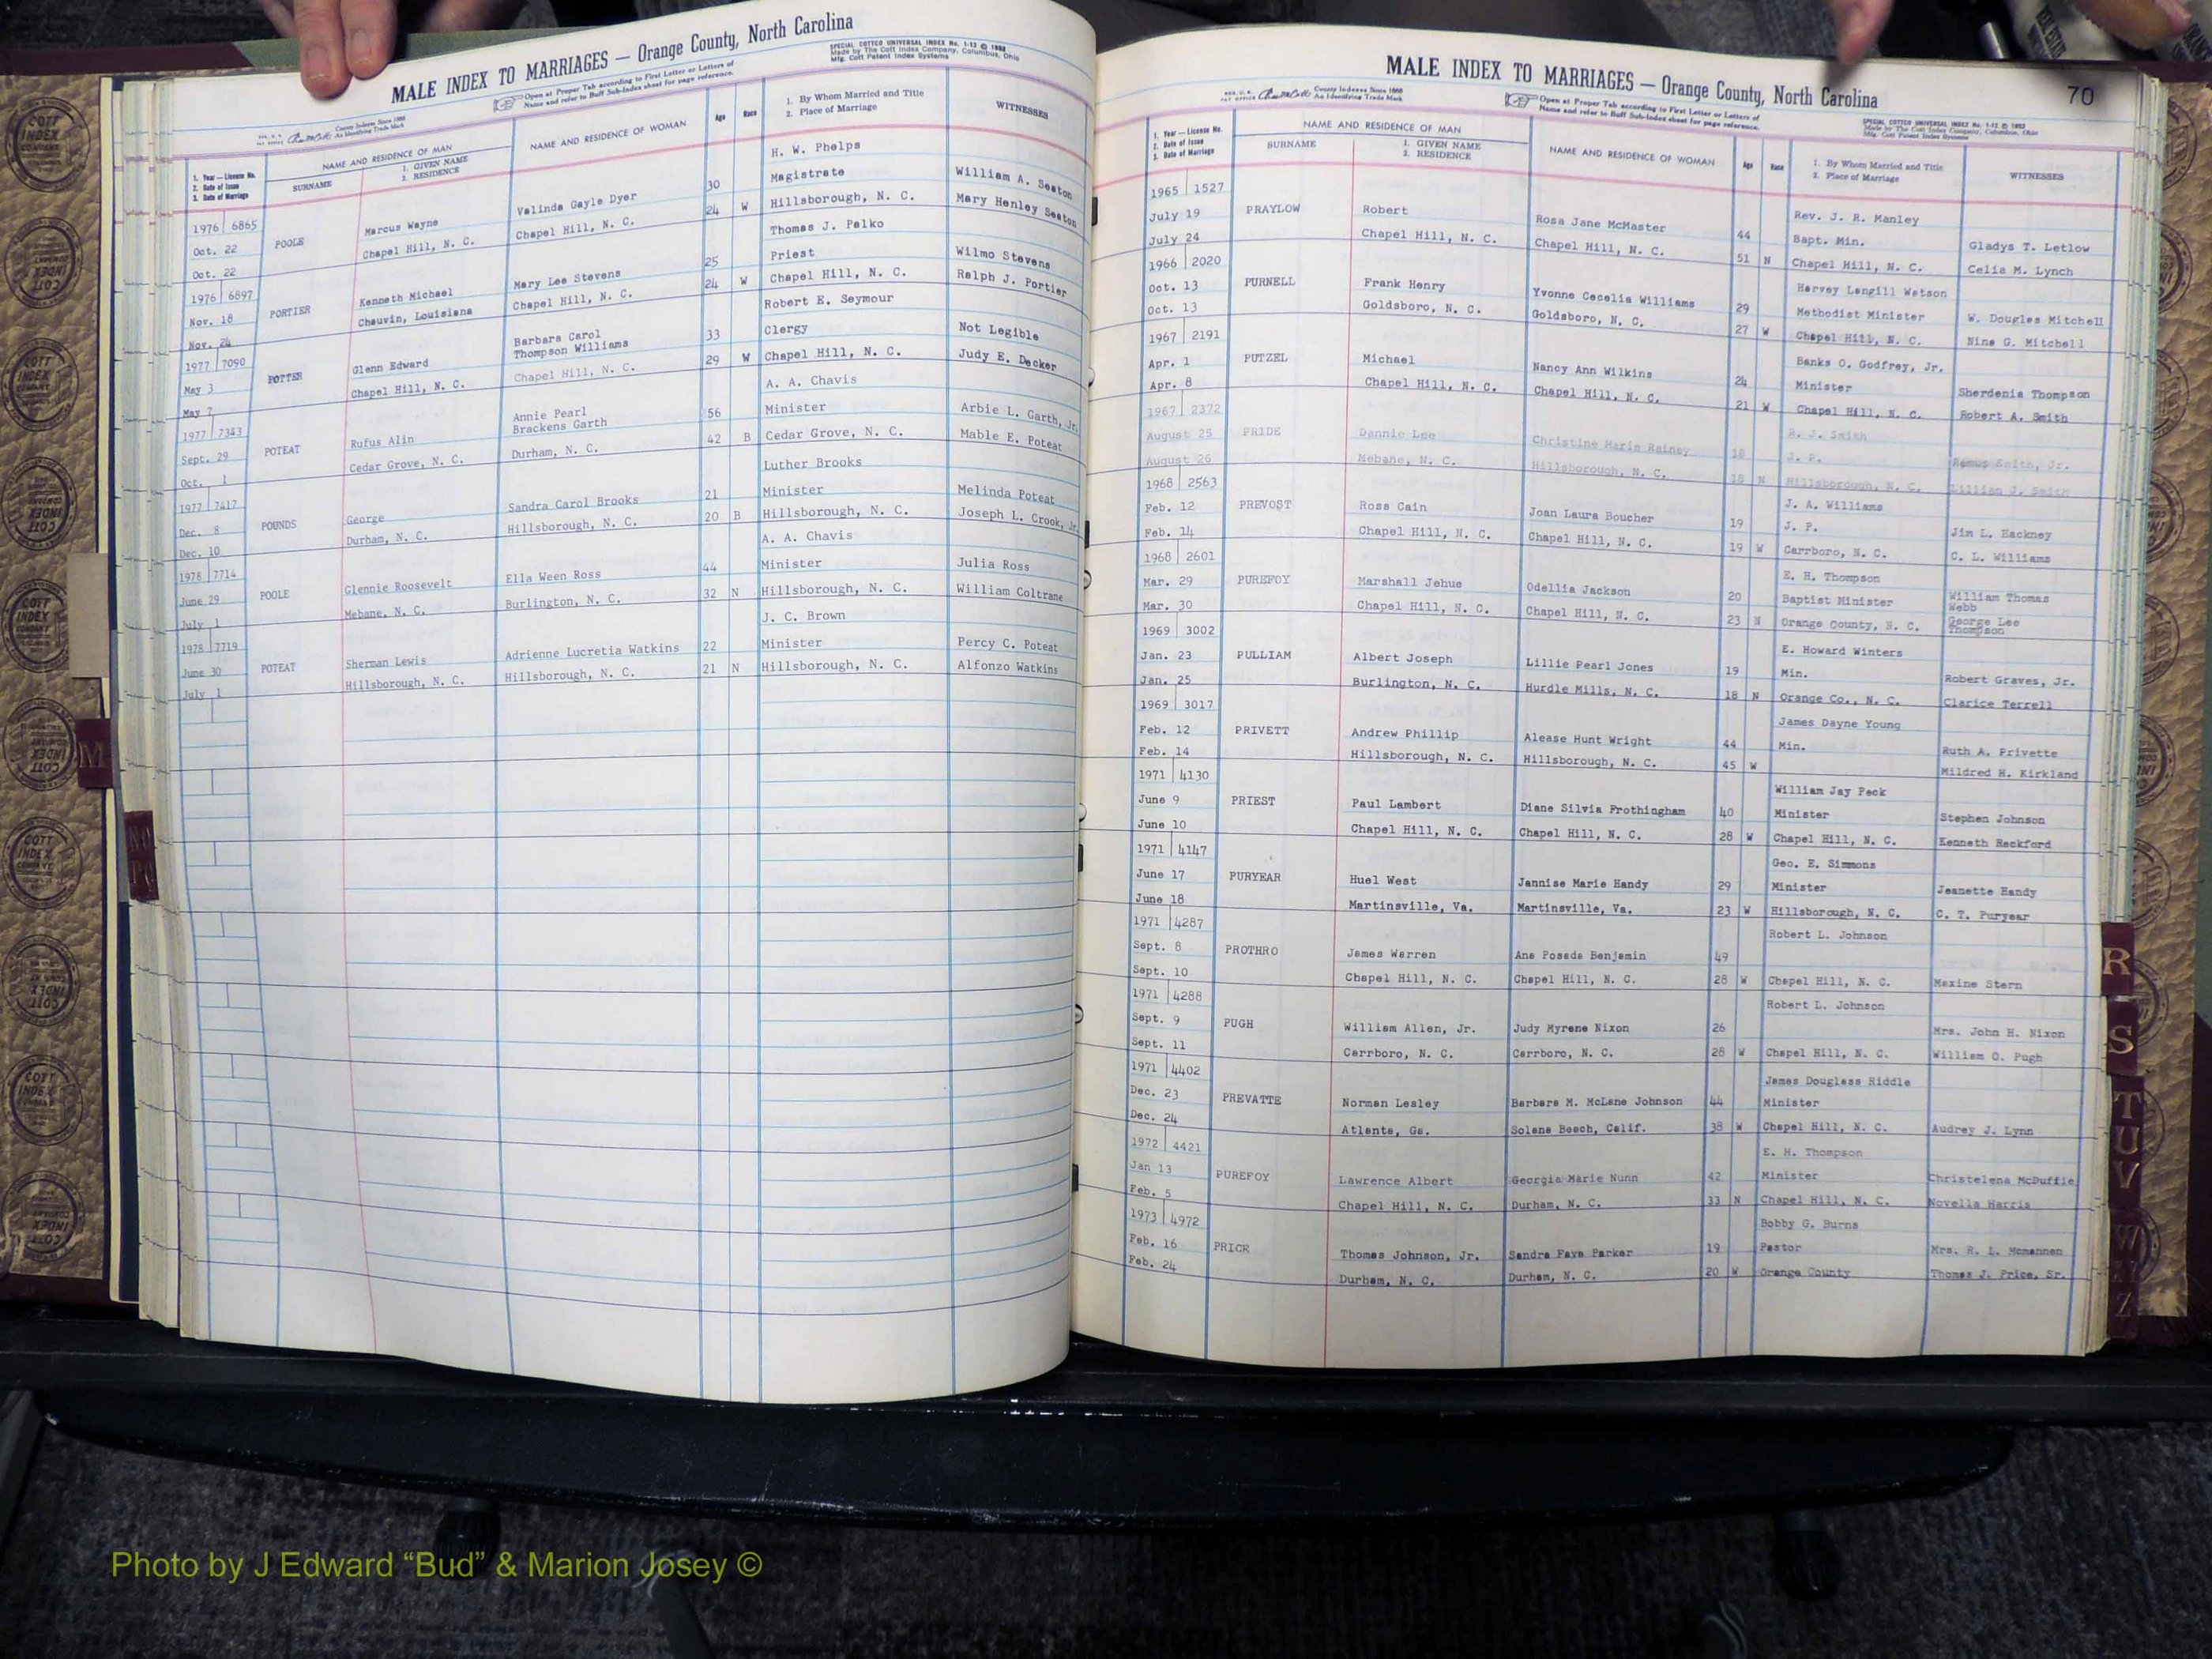 MALE INDEX TO MARRIAGES — Orange County, North Carolina
SPECIAL COTTCO UNIVERSAL INDEX No. 1-12 © 1952
Made by The Cott Index Company, Columbus, Ohio
Mfg. Cott Patent Index Systems
County Indexes Since 1888
An Identifying Trade Mark
Open at Proper Tab according to First Letter or Letters of
Name and refer to Buff Sub-Index sheet for page reference.
1. Year — License No.
2. Date of Issue
3. Date of Marriage
NAME AND RESIDENCE OF MAN
SURNAME
1. GIVEN NAME
2. RESIDENCE
NAME AND RESIDENCE OF WOMAN
Age
Race
1. By Whom Married and Title
2. Place of Marriage
WITNESSES
H. W. Phelps
1976 6865 Valinda Gayle Dyer 30 Magistrate William A. Seaton
Oct. 22 POOLE Marcus Wayne Chapel Hill, N. C. 24 W Hillsborough, N. C. Mary Henley Seaton
Oct. 22 Chapel Hill, N. C.
Thomas J. Palko
1976 6897 Kenneth Michael Mary Lee Stevens 25 Priest Wilmo Stevens
Nov. 18 PORTIER Chauvin, Louisiana Chapel Hill, N. C. 24 W Chapel Hill, N. C. Ralph J. Portier
Nov. 24
Robert E. Seymour
1977 7090 Glenn Edward Barbara Carol 33 Clergy Not Legible
Thompson Williams
May 3 POTTER Chapel Hill, N. C. Chapel Hill, N. C. 29 W Chapel Hill, N. C. Judy E. Decker
May 7
A. A. Chavis
1977 7343 Rufus Alin Annie Pearl 56 Minister Arbie L. Garth, Jr.
Brackens Garth
Sept. 29 POTEAT Cedar Grove, N. C. Durham, N. C. 42 B Cedar Grove, N. C. Mable E. Poteat
Oct. 1
Luther Brooks
1977 7417 George Sandra Carol Brooks 21 Minister Melinda Poteat
Dec. 8 POUNDS Durham, N. C. Hillsborough, N. C. 20 B Hillsborough, N. C. Joseph L. Crook, Jr.
Dec. 10
A. A. Chavis
1978 7714 Glennie Roosevelt Ella Ween Ross 44 Minister Julia Ross
June 29 POOLE Mebane, N. C. Burlington, N. C. 32 N Hillsborough, N. C. William Coltrane
July 1
J. C. Brown
1978 7719 Sherman Lewis Adrienne Lucretia Watkins 22 Minister Percy C. Poteat
June 30 POTEAT Hillsborough, N. C. Hillsborough, N. C. 21 N Hillsborough, N. C. Alfonzo Watkins
July 1
MALE INDEX TO MARRIAGES — Orange County, North Carolina
70
County Indexes Since 1888
An Identifying Trade Mark
Open at Proper Tab according to First Letter or Letters of
Name and refer to Buff Sub-Index sheet for page reference.
SPECIAL COTTCO UNIVERSAL INDEX No. 1-12 © 1952
Made by The Cott Index Company, Columbus, Ohio
Mfg. Cott Patent Index Systems
1. Year — License No.
2. Date of Issue
3. Date of Marriage
NAME AND RESIDENCE OF MAN
SURNAME
1. GIVEN NAME
2. RESIDENCE
NAME AND RESIDENCE OF WOMAN
Age
Race
1. By Whom Married and Title
2. Place of Marriage
WITNESSES
1965 1527 Rev. J. R. Manley
July 19 PRAYLOW Robert Rosa Jane McMaster 44 Bapt. Min. Gladys T. Letlow
July 24 Chapel Hill, N. C. Chapel Hill, N. C. 51 N Chapel Hill, N. C. Celia M. Lynch
1966 2020 Harvey Langill Watson
Oct. 13 PURNELL Frank Henry Yvonne Cecelia Williams 29 Methodist Minister W. Douglas Mitchell
Oct. 13 Goldsboro, N. C. Goldsboro, N. C. 27 W Chapel Hill, N. C. Nina G. Mitchell
1967 2191 Banks O. Godfrey, Jr.
Apr. 1 PUTZEL Michael Nancy Ann Wilkins 24 Minister Sherdenia Thompson
Apr. 8 Chapel Hill, N. C. Chapel Hill, N. C. 21 W Chapel Hill, N. C. Robert A. Smith
1967 2372 R. J. Smith
August 25 PRIDE Dannie Lee Christine Marie Rainey 18 J. P. Remus Smith, Jr.
August 26 Mebane, N. C. Hillsborough, N. C. 18 N Hillsborough, N. C. Lillian J. Smith
1968 2563 J. A. Williams
Feb. 12 PREVOST Ross Cain Joan Laura Boucher 19 J. P. Jim L. Hackney
Feb. 14 Chapel Hill, N. C. Chapel Hill, N. C. 19 W Carrboro, N. C. C. L. Williams
1968 2601 E. H. Thompson
Mar. 29 PUREFOY Marshall Jehue Odellia Jackson 20 Baptist Minister William Thomas
Webb
Mar. 30 Chapel Hill, N. C. Chapel Hill, N. C. 23 N Orange County, N. C. George Lee
Thompson
1969 3002 E. Howard Winters
Jan. 23 PULLIAM Albert Joseph Lillie Pearl Jones 19 Min. Robert Graves, Jr.
Jan. 25 Burlington, N. C. Hurdle Mills, N. C. 18 N Orange Co., N. C. Clarice Terrell
1969 3017 James Dayne Young
Feb. 12 PRIVETT Andrew Phillip Alease Hunt Wright 44 Min. Ruth A. Privette
Feb. 14 Hillsborough, N. C. Hillsborough, N. C. 45 W Mildred H. Kirkland
1971 4130 William Jay Peck
June 9 PRIEST Paul Lambert Diane Silvia Frothingham 40 Minister Stephen Johnson
June 10 Chapel Hill, N. C. Chapel Hill, N. C. 28 W Chapel Hill, N. C. Kenneth Reckford
1971 4147 Geo. E. Simmons
June 17 PURYEAR Huel West Jannise Marie Handy 29 Minister Jeanette Handy
June 18 Martinsville, Va. Martinsville, Va. 23 W Hillsborough, N. C. C. T. Puryear
1971 4287 Robert L. Johnson
Sept. 8 PROTHRO James Warren Ana Posada Benjamin 49
Sept. 10 Chapel Hill, N. C. Chapel Hill, N. C. 28 W Chapel Hill, N. C. Maxine Stern
1971 4288 Robert L. Johnson
Sept. 9 PUGH William Allen, Jr. Judy Myrene Nixon 26 Mrs. John H. Nixon
Sept. 11 Carrboro, N. C. Carrboro, N. C. 28 W Chapel Hill, N. C. William O. Pugh
1971 4402 James Douglass Riddle
Dec. 23 PREVATTE Norman Lesley Barbara M. McLane Johnson 44 Minister
Dec. 24 Atlanta, Ga. Solana Beach, Calif. 38 W Chapel Hill, N. C. Audrey J. Lynn
1972 4421 E. H. Thompson
Jan 13 PUREFOY Lawrence Albert Georgia Marie Nunn 42 Minister Christelena McDuffie
Feb. 5 Chapel Hill, N. C. Durham, N. C. 33 N Chapel Hill, N. C. Novella Harris
1973 4972 Bobby G. Burns
Feb. 16 PRICE Thomas Johnson, Jr. Sandra Faye Parker 19 Pastor Mrs. R. L. Mcmannen
Feb. 24 Durham, N. C. Durham, N. C. 20 W Orange County Thomas J. Price, Sr.
M
R
S
T
U
V
W
Z
COTT
INDEX
COMPANY
Photo by J Edward “Bud” & Marion Josey ©